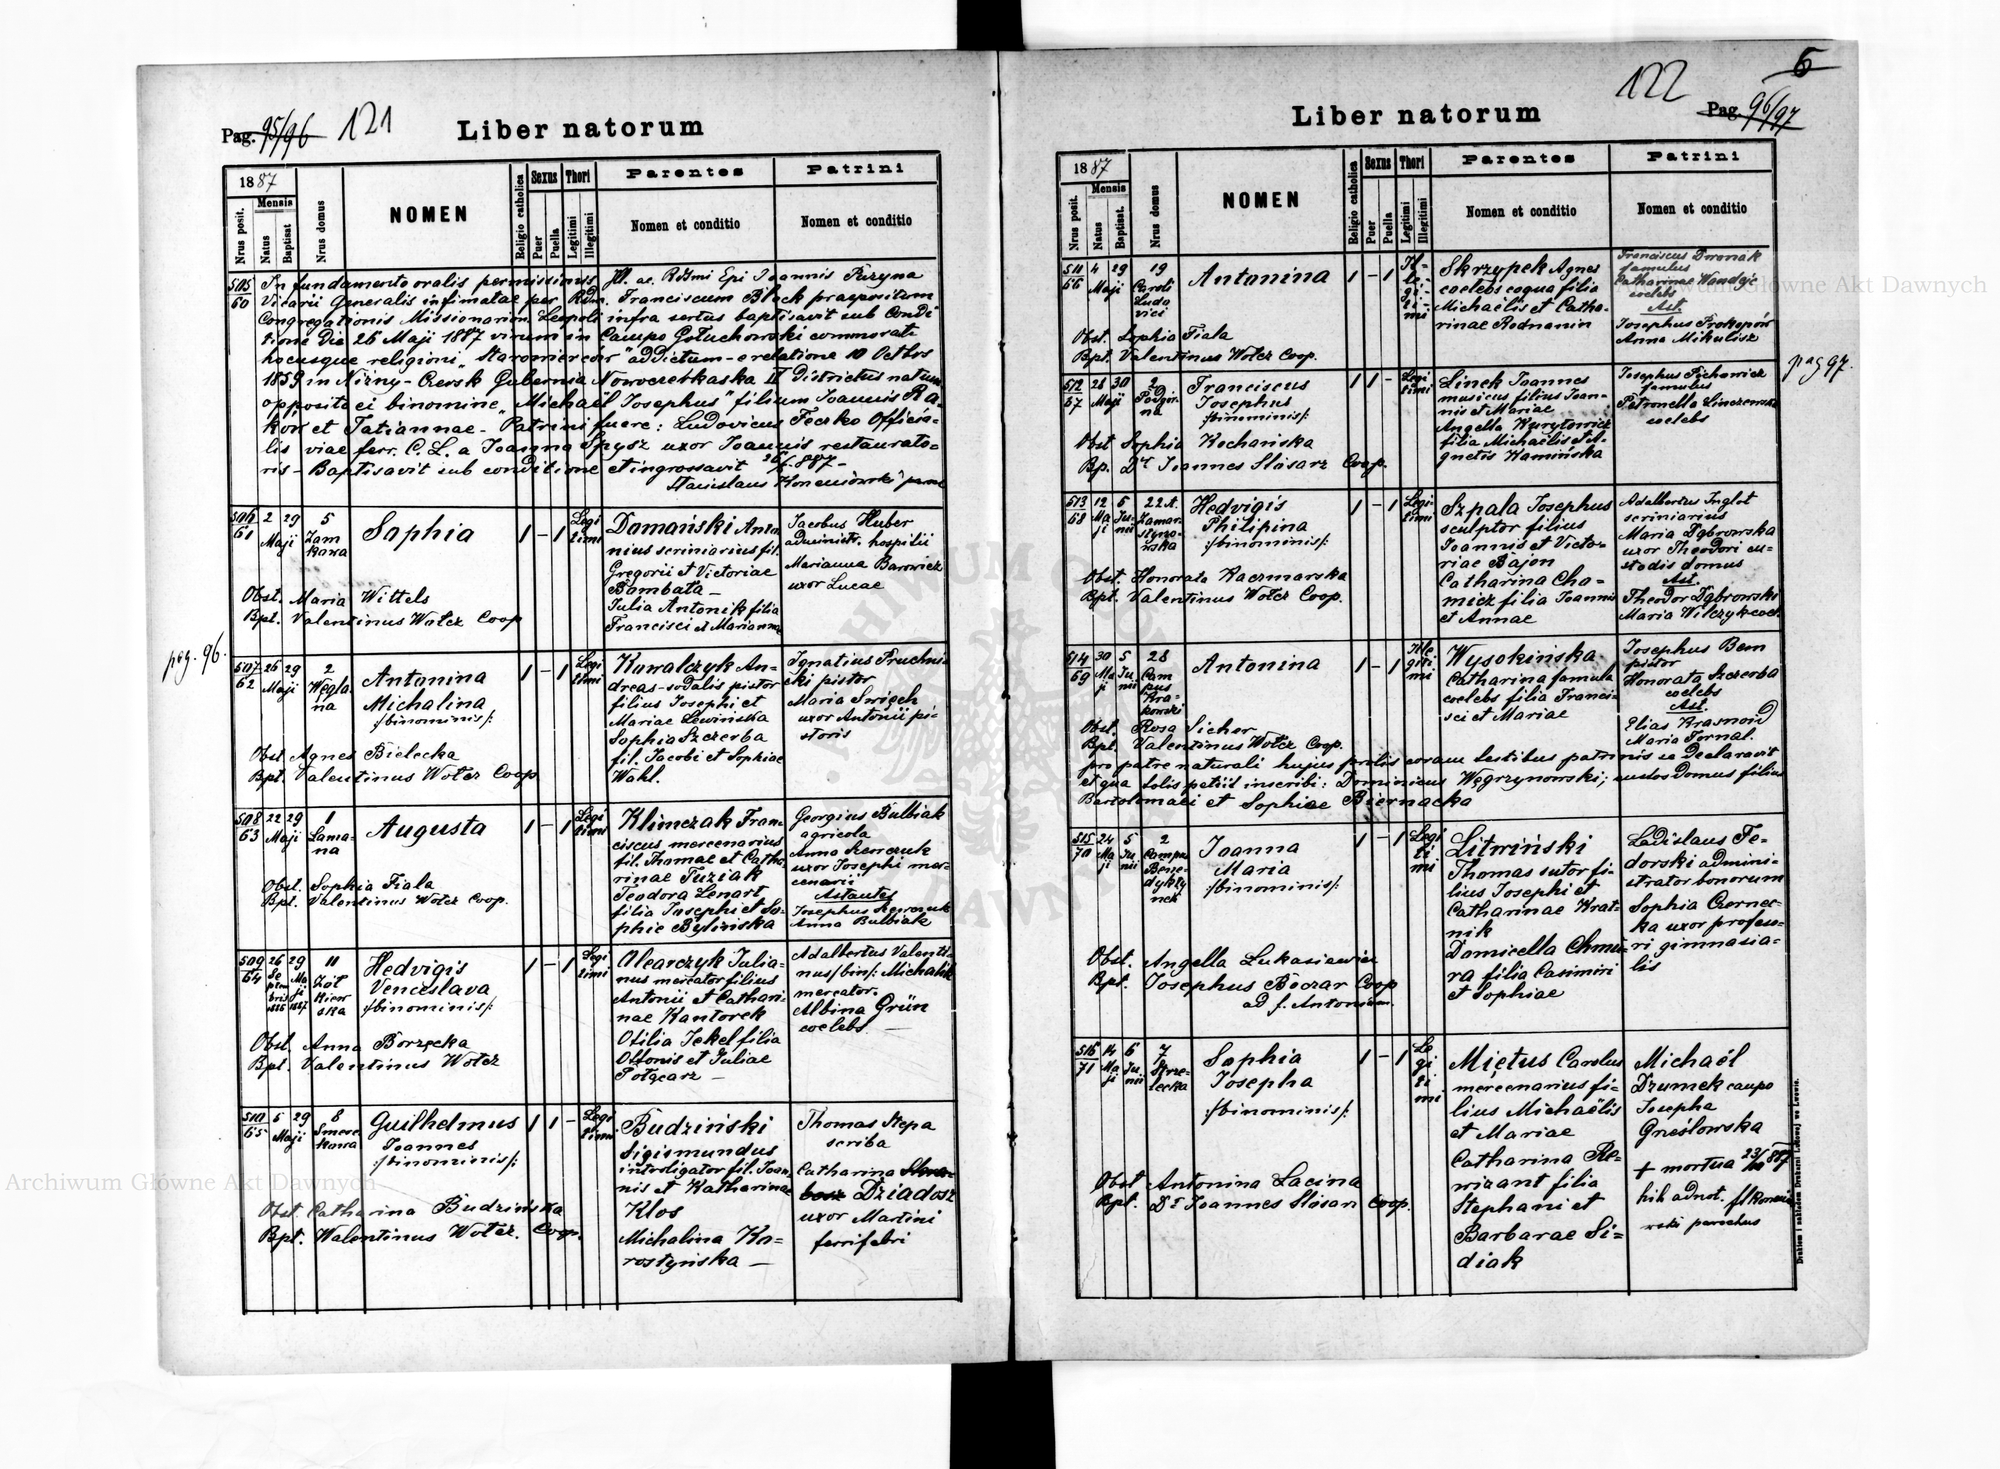 Pag. 95/96 121
Liber natorum
1887
Mensis
Nrus posit.
Natus
Baptisat
Nrus domus
NOMEN
Religio catholica
Sexus
Puer
Puella
Thori
Legitimi
Illegitimi
Parentes
Nomen et conditio
Patrini
Nomen et conditio
505
60
In fundamento oralis permissionis Ill. ac Rdssmi Epi Joannis Puzyna
Vicarii Generalis infimatae per Rdm. Franciscum Block praepositum
Congregationis Missionariorum Leopoli infra sertus baptisavit sub Condi
tione die 26 Maji 1887 virum in Campo Gołuchowski commorati
hocusque religioni "Staromiercow" addictum - e relatione 10 Octbrs
1859 in Niżny-Czersk Gubernia Nowoczerkaska II Districtus natum
opposito ei binomine "Michaël Josephus" filium Joannis Ra-
kow et Tatiannae - Patrini fuere: Ludovicus Fecsko Officia-
lis viae ferr. C. L. a Joanna Spysz uxor Joannis restaurato-
ris - Baptisavit sub conditione et ingrossavit 26/5 887 -
Stanislaus
506 2 29 5
61 Maji Zam
karna
Sophia
1 - 1 Legi
timi
Domański Anto
nius scriniarius fil.
Gregorii et Victoriae
Bambata -
Julia Antonik filia
Francisci et Mariannae
Jacobus Huber
administr. hospitii
Marianna Barowicz
uxor Lucae
Obst. Maria Wittels
Bpt. Valentinus Wołcz Coop
pag. 96.
507 26 29 2
62 Maji Węgla
na
Antonina
Michalina
:/binominis/:
1 - 1 Legi
timi
Kowalczyk An-
dreas - sodalis pistor
filius Josephi et
Mariae Lewińska
Sophia Szczerba
fil. Jacobi et Sophiae
Wahl.
Ignatius Pruchni
cki pistor
Maria Swięch
uxor Antonii pi-
storis
Obst. Agnes Bielecka
Bpt. Valentinus Wołcz Coop
508 22 29 1
63 Maji Łama-
na
Augusta
1 - 1 Legi
timi
Klimczak Fran-
ciscus mercenarius
fil. Thomae et Catha-
rinae Tuziak
Teodora Lenart
filia Josephi et So-
phie Bylińska
Georgius Bulbiak
agricola
Anna Szewczuk
uxor Josephi mer-
cenarii
Astantes
Josephus Szewczuk
Anna Bulbiak
Obst. Sophia Fiala
Bpt. Valentinus Wołcz Coop.
509 26 29 11
64 Se Ma Żół
ptem ji kiew
bris 1887 ska
1886
Hedvigis
Venceslava
:/binominis/:
1 - 1 Legi
timi
Olearczyk Julia-
nus mercator filius
Antonii et Cathari-
nae Kantorek
Otilia Jekel filia
Ottonis et Juliae
Potgearz -
Adalbertus Valenti-
nus /bin/: Michalik
mercator.
Albina Grün
coelebs -
Obst. Anna Borzęcka
Bpt. Valentinus Wołcz
510 5 29 8
65 Maji Smere
kowa
Guilhelmus
Joannes
:/binominis/:
1 1 - Legi
timi
Budziński
Sigismundus
introligator fil. Joan-
nis et Katharinae
Klos
Michalina Ko-
rostyńska -
Thomas Stepa
scriba
Catharina
Dziadosz
uxor Martini
ferrifabri
Obst. Catharina Budzińska
Bpt. Walentinus Wołcz. Coop.
6
122
Pag. 96/97
Liber natorum
1887
Mensis
Nrus posit.
Natus
Baptisat.
Nrus domus
NOMEN
Religio catholica
Sexus
Puer
Puella
Thori
Legitimi
Illegitimi
Parentes
Nomen et conditio
Patrini
Nomen et conditio
511 4 29 19
66 Maji Caroli
Ludo
vici
Antonina
1 - 1 Il-
le-
gi-
ti-
mi
Skrzypek Agnes
coelebs coqua filia
Michaelis et Catha-
rinae Rodnanin
Franciscus Dwonak
famulus
Catharina
coelebs
Ast.
Josephus Prokopów
Anna Mikulisz
Obst. Sophia Fiala
Bpt. Valentinus Wołcz Coop.
pag 97.
512 28 30 2
67 Maji Podgór-
na
Franciscus
Josephus
:/binominis/:
1 1 - Legi
timi
Linek Joannes
musicus filius Joan-
nis et Mariae
Angella Kurytowicz
filia Michaëlis et A-
gnetis Kamińska
Josephus Pichowicz
famulus
Petronella Linczewska
coelebs
Obst Sophia Kochańska
Bp. Dr Joannes Ślósarz Coop.
513 12 5 22 A.
68 Ma Ju- Zamar
ji nii styno-
wska
Hedvigis
Philipina
:/binominis/:
1 - 1 Legi
timi
Szpala Josephus
sculptor filius
Joannis et Victo-
riae Bajon
Catharina Cho-
micz filia Joannis
et Annae
Adalbertus Inglot
scriniarius
Maria Dąbrowska
uxor Theodori cu-
stodis domus
Ast.
Theodor Dąbrowski
Maria Wilczyk coel.
Obst. Honorata Kaczmarska
Bpt. Valentinus Wołcz Coop.
514 30 5 28
69 Ma Ju- Cam
ji nii pus
Kra-
kowski
Antonina
1 - 1 Ille
giti
mi
Wysokińska
Catharina famula
coelebs filia Franci-
sci et Mariae
Josephus Bem
pistor
Honorata Szczerba
coelebs
Ast.
Elias Krasnoid
Maria Fornal.
Obst. Rosa Sicher
Bpt. Valentinus Wołcz Coop.
pro patre naturali hujus prolis coram testibus patrinis se declaravit
et qua talis petiit inscribi: Dominicus Węgrzynowski; custos domus filius
Bartolomaei et Sophiae Biernacka
515 24 5 2
70 Ma Ju- Campus
ji nii Bene-
dykty
nek
Joanna
Maria
:/binominis/:
1 - 1 Legi
ti
mi
Litwiński
Thomas sutor fi-
lius Josephi et
Catharinae Krat-
nik
Domicella Chmu-
ra filia Casimiri
et Sophiae
Ladislaus Fe-
dorski admini-
strator bonorum
Sophia Czernec-
ka uxor professo-
ri gimnasia-
lis
Obst. Angella Łukasiewicz
Bpt. Josephus Boczar Coop
ad s. Antonium.
516 14 6 7
71 Ma Ju- Strze-
ji nii lecka
Sophia
Josepha
:/binominis/:
1 - 1 Le
gi
ti
mi
Miętus Carolus
mercenarius fi-
lius Michaëlis
et Mariae
Catharina Re-
wizant filia
Stephani et
Barbarae Si-
diak
Michaël
Drumek caupo
Josepha
Greślowska
+ mortua 23/ 887
hib adnot.
parochus
Obst Antonina Łacina
Bpt. Dr Joannes Ślósarz Coop.
Drukiem i nakładem Drukarni Ludowej we Lwowie.
Archiwum Główne Akt Dawnych
Archiwum Główne Akt Dawnych
ARCHIWUM GŁÓWNE AKT DAWNYCH